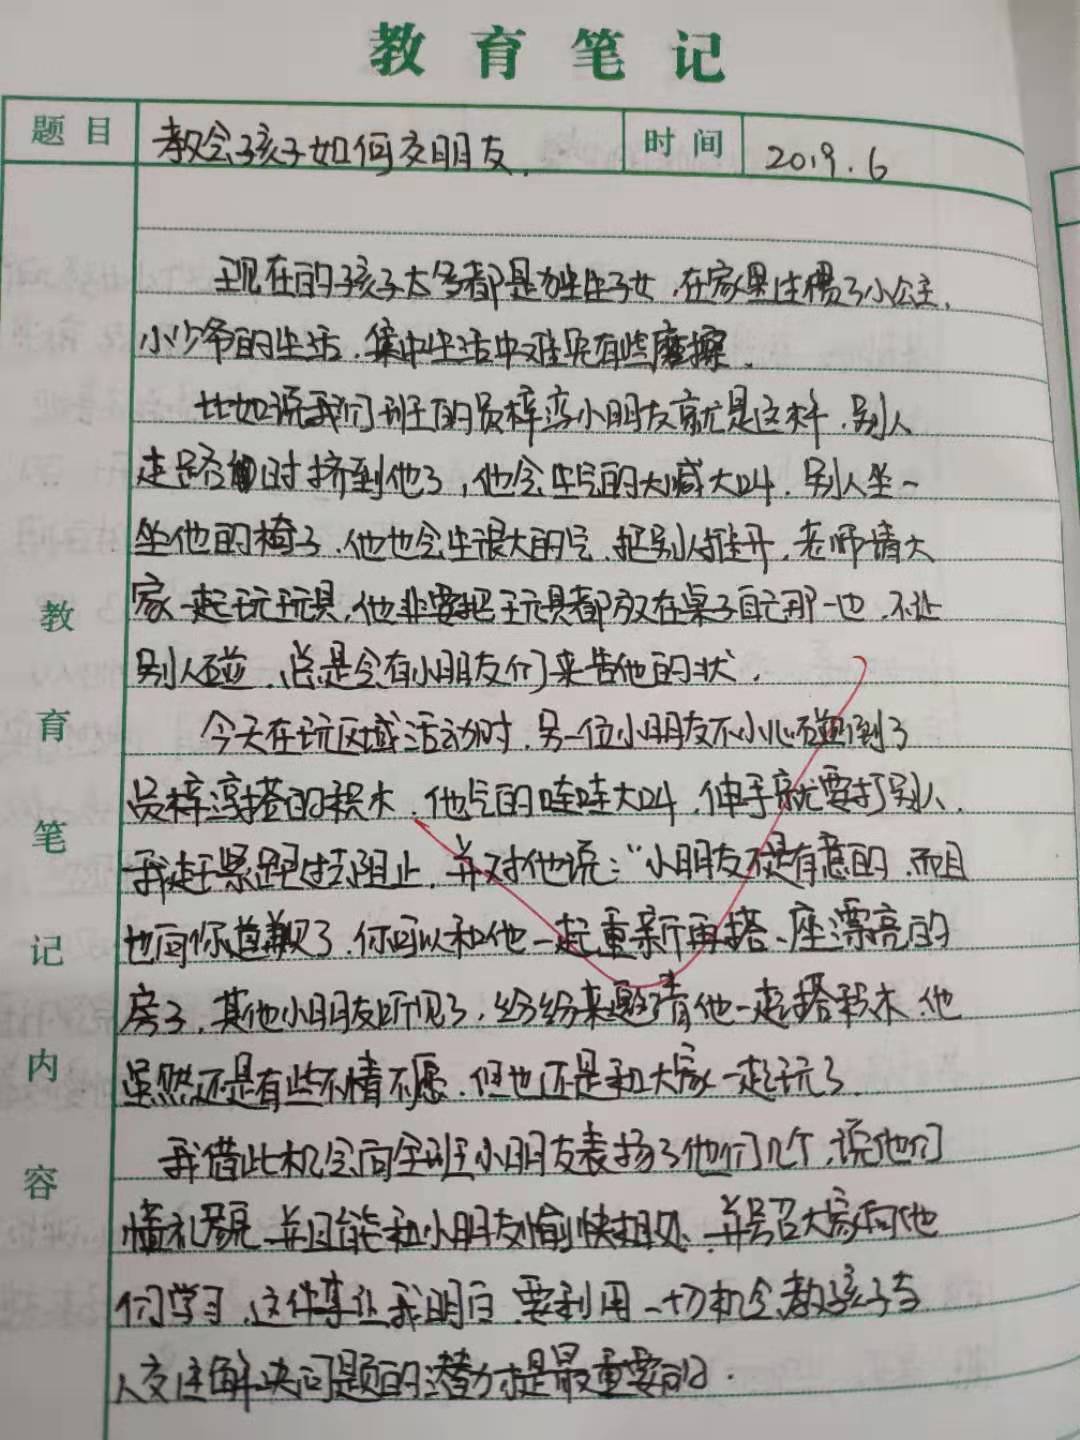 教育笔记
题目 教会孩子如何交朋友. 时间 2019.6
现在的孩子大多都是独生子女,在家里过惯了小公主,
小少爷的生活,集中生活中难免有些磨擦.
比如说我们班的员梓淳小朋友就是这样,别人
走路时挤到他了,他会生气的大喊大叫,别人坐一
坐他的椅子,他也会生很大的气,把别人推开,老师请大
家一起玩玩具,他非要把玩具都放在桌子自己那一边,不让
别人碰,总是会有小朋友们来告他的状.
今天在玩区域活动时,另一位小朋友不小心碰倒了
员梓淳搭的积木,他气的哇哇大叫,伸手就要打别人.
我赶紧跑过去阻止,并对他说:“小朋友不是有意的,而且
也向你道歉了,你可以和他一起重新再搭一座漂亮的
房子,其他小朋友听见了,纷纷来邀请他一起搭积木,他
虽然还是有些不情不愿,但也还是和大家一起玩了.
我借此机会向全班小朋友表扬了他们几个,说他们
懂礼貌,并且能和小朋友愉快相处,并号召大家向他
们学习,这件事让我明白,要利用一切机会教孩子与
人交往解决问题的潜力才是最重要的.
教育笔记内容